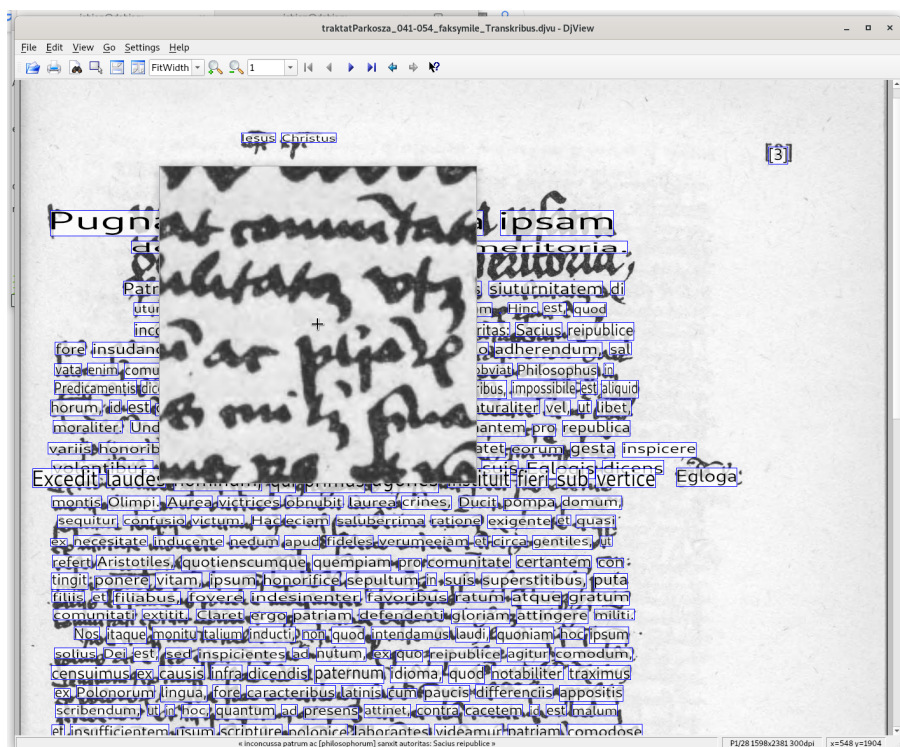 traktatParkosza_041-054_faksymile_Transkribus.djvu - DjView
File Edit View Go Settings Help
FitWidth 1
Iesus Christus
[3]
Pugna ipsam
meritoria.
Patr siuturnitatem di
utur Hinc est, quod
inco ritas: Sacius reipublice
fore insudand o adherendum, sal
vata enim comu obviat Philosophus in
Predicamentis dic ribus, impossibile est aliquid
horum, id est aturaliter vel, ut libet,
moraliter. Und nantem pro republica
variis honorib atet eorum gesta inspicere
volentibus suis Eglogis dicens
Excedit laudes hominum, qui primus agones instituit fieri sub vertice Egloga:
montis Olimpi. Aurea victrices obnubit laurea crines, Ducit pompa domum,
sequitur confusio victum. Hac eciam saluberrima ratione exigente et quasi
ex necesitate inducente nedum apud fideles verumeciam et circa gentiles, ut
refert Aristotiles, quotienscumque quempiam pro comunitate certantem con-
tingit ponere vitam, ipsum honorifice sepultum in suis superstitibus, puta
filiis et filiabus, fovere indesinenter favoribus ratum atque gratum
comunitati extitit. Claret ergo patriam defendenti gloriam attingere militi.
Nos itaque monitu talium inducti, non quod intendamus laudi, quoniam hoc ipsum
solius Dei est, sed inspicientes ad nutum, ex quo reipublice agitur comodum,
censuimus ex causis infra dicendis paternum idioma, quod notabiliter traximus
ex Polonorum lingua, fore caracteribus latinis cum paucis differenciis appositis
scribendum, ut in hoc, quantum ad presens attinet, contra cacetem, id est malum
et insufficientem usum scripture polonice laborantes videamur patriam comodose
« inconcussa patrum ac [philosophorum] sanxit autoritas: Sacius reipublice »
P1/28 1598x2381 300dpi
x=548 y=1904